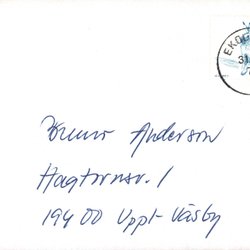 EKO
31
Brunno Anderson
Hagtornsv. 1
194 00 Uppl-Väsby